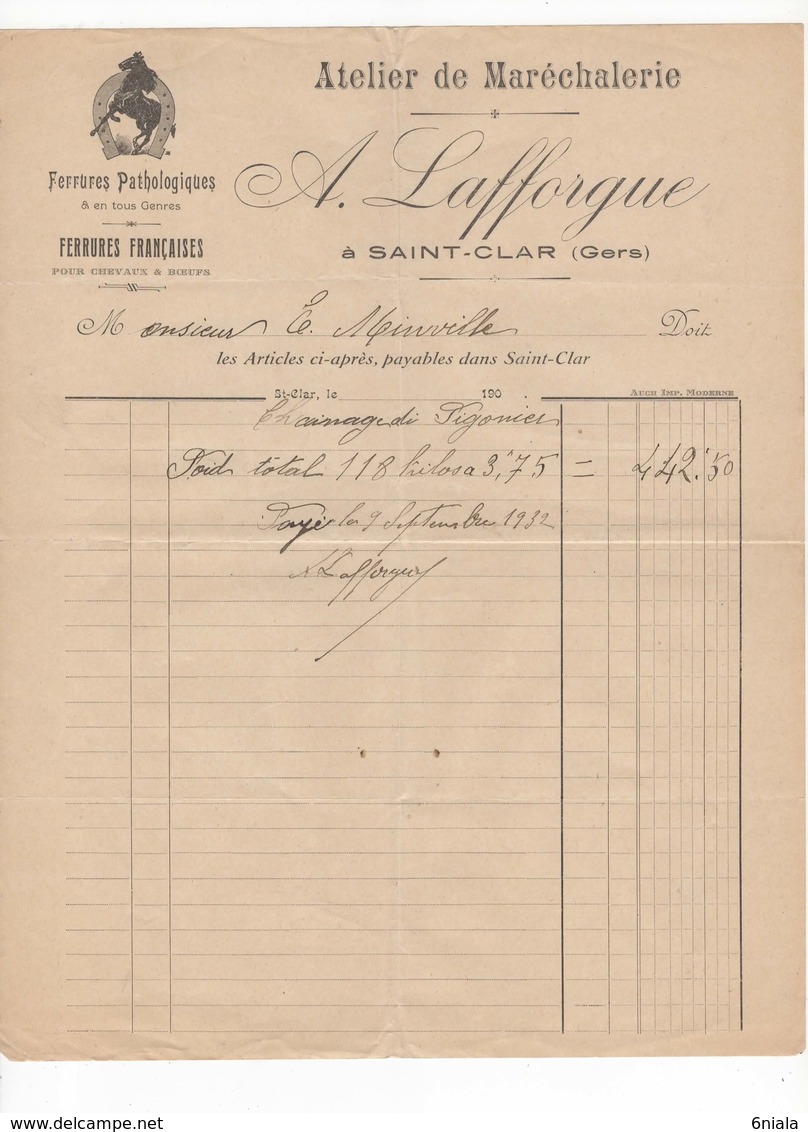 Atelier de Maréchalerie
Ferrures Pathologiques
& en tous Genres
FERRURES FRANÇAISES
POUR CHEVAUX & BŒUFS
A. Lafforgue
à SAINT-CLAR (Gers)
Monsieur E. Minville Doit
les Articles ci-après, payables dans Saint-Clar
St-Clar, le 190 .
AUCH IMP. MODERNE
Chainage di Pigonier
Poid total 118 kilos a 3,75 = 442.50
Payé le 9 Septembre 1932
A Lafforgue
6niala